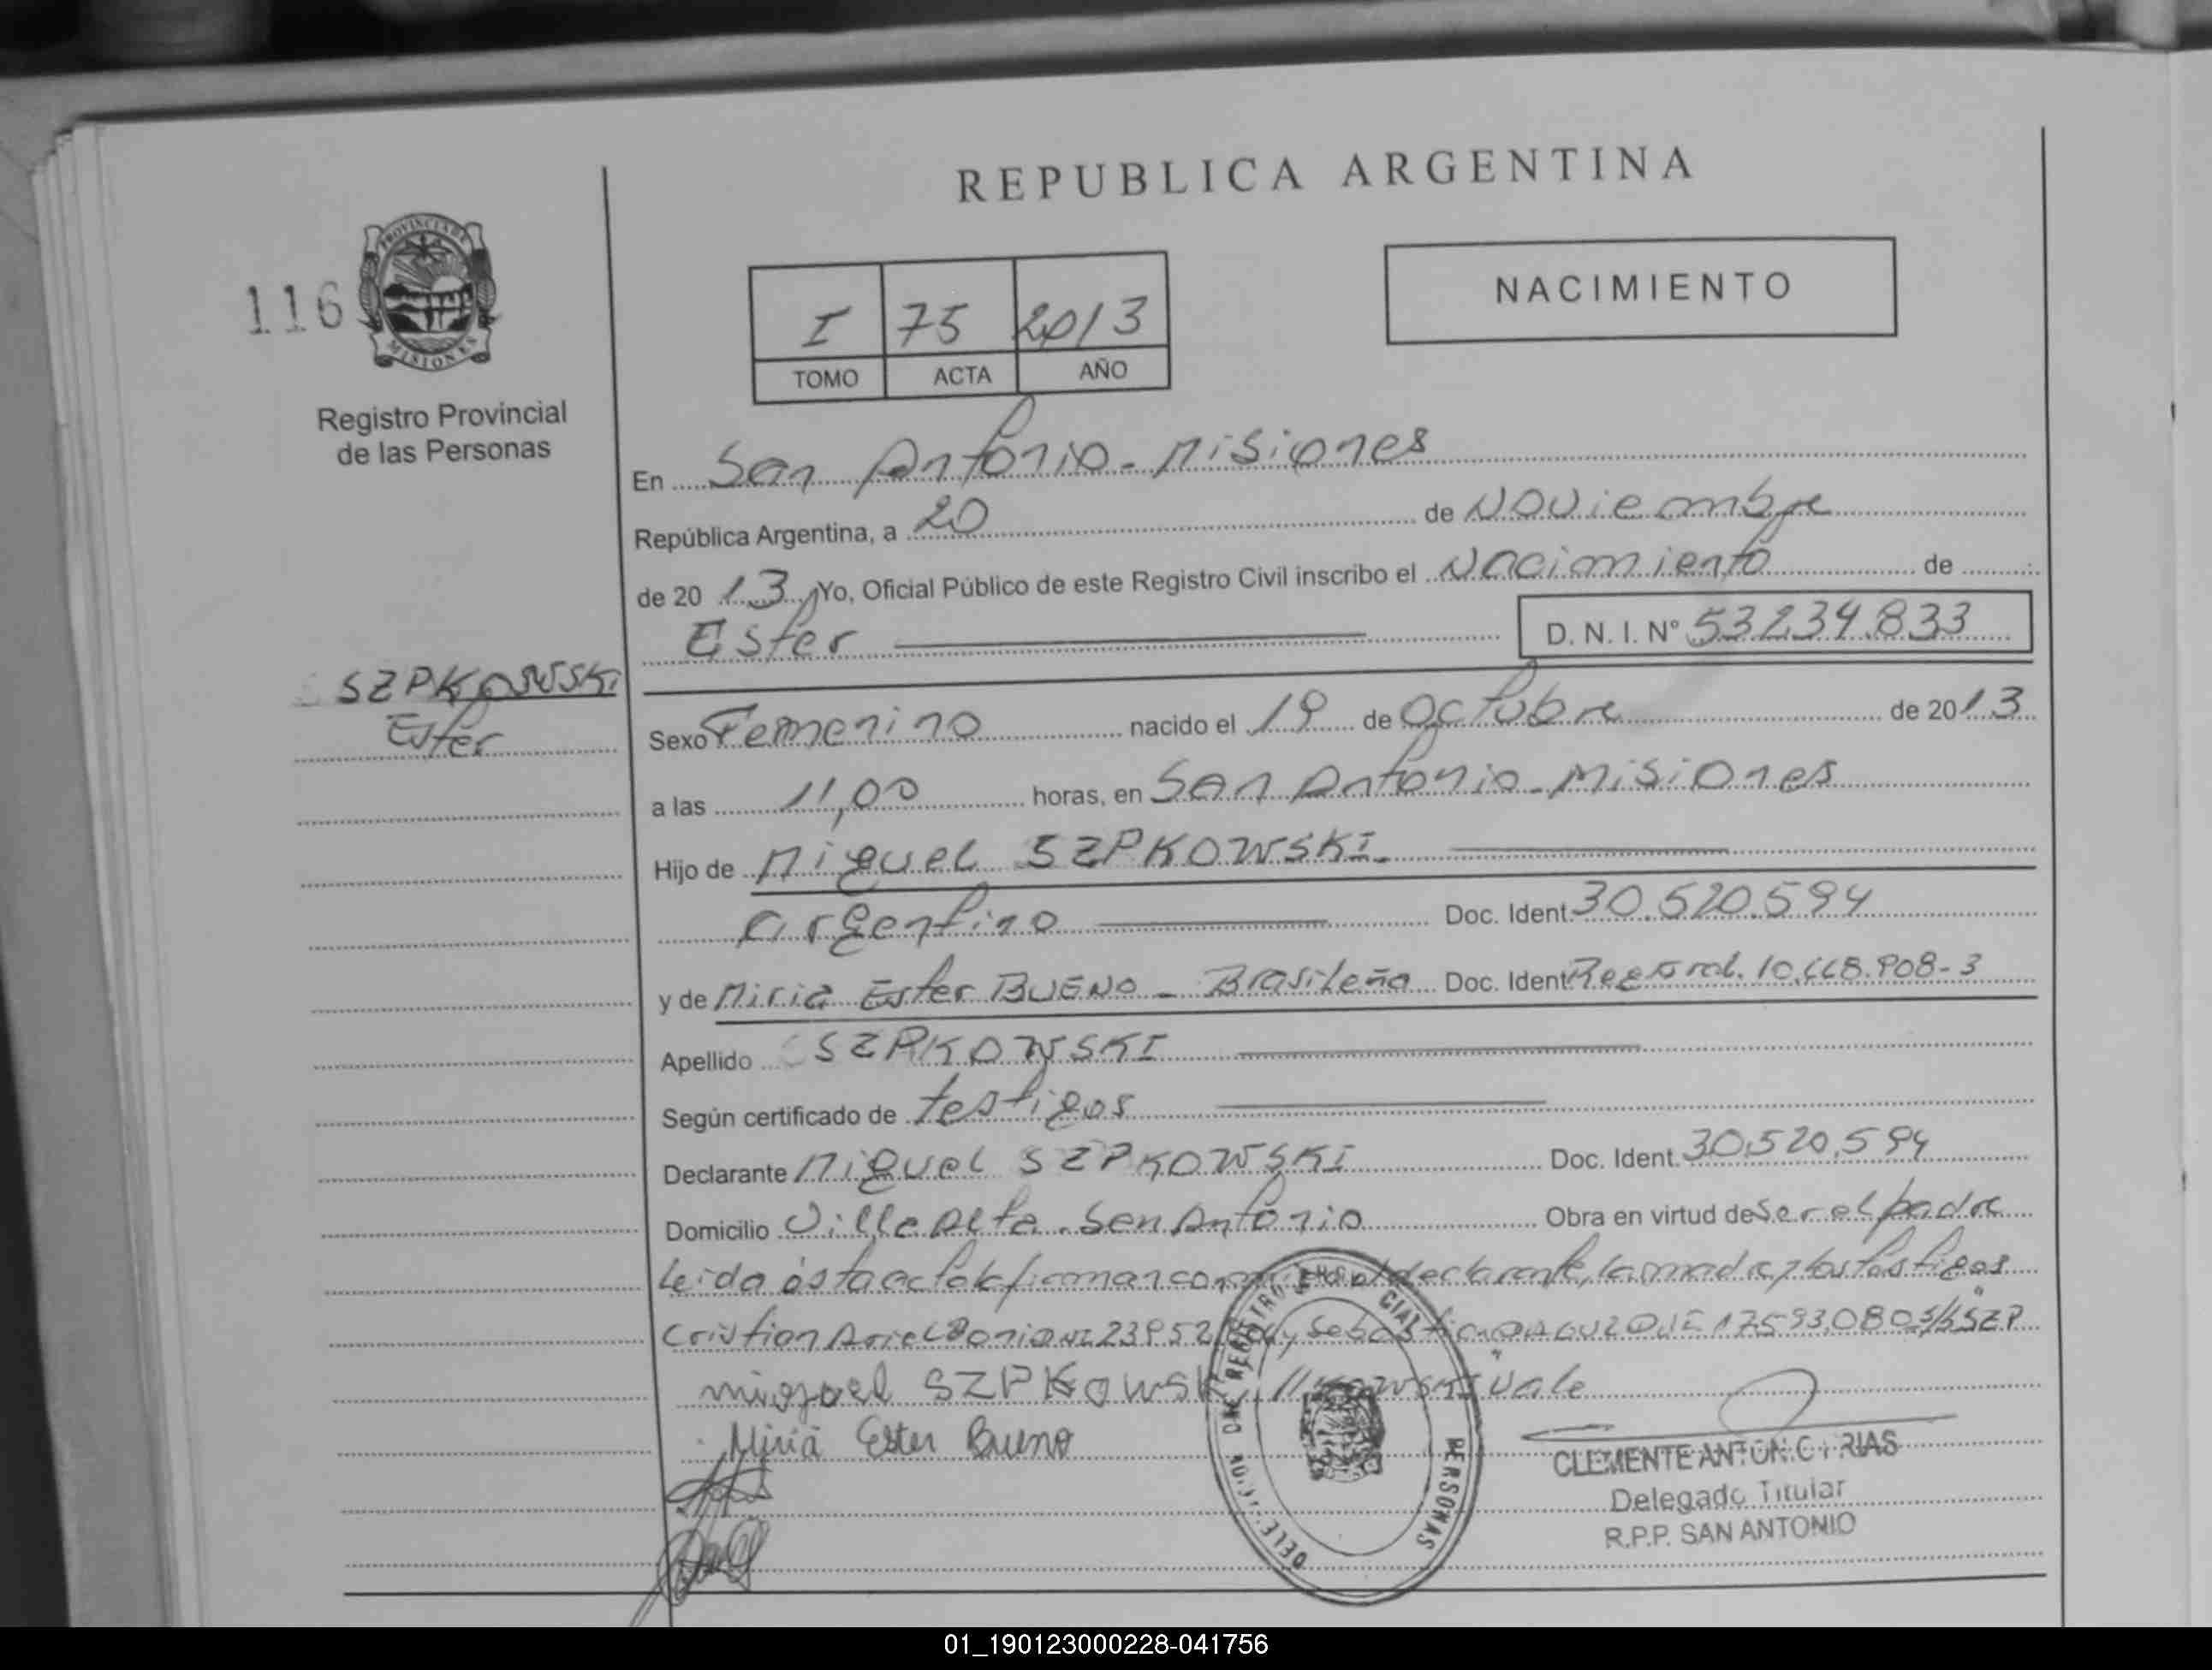 REPUBLICA ARGENTINA
116
PROVINCIA DE
MISIONES
Registro Provincial
de las Personas
I 75 2013
TOMO ACTA AÑO
NACIMIENTO
En San Antonio - Misiones
República Argentina, a 20 de Noviembre
de 20 13 Yo, Oficial Público de este Registro Civil inscribo el Nacimiento de
Ester D. N. I. Nº 53.234.833
SZPKOWSKI
Ester
Sexo Femenino nacido el 19 de Octubre de 2013
a las 11,00 horas, en San Antonio - Misiones
Hijo de Miguel SZPKOWSKI.
argentino Doc. Ident. 30.520.594
y de Miriã Ester BUENO - Brasileña Doc. Ident. 10.668.908-3
Apellido SZPKOWSKI
Según certificado de testigos
Declarante Miguel SZPKOWSKI Doc. Ident. 30.520.594
Domicilio Villa Alta - San Antonio Obra en virtud de Ser el padre
Leida ésta acta la firman el declarante, la madre y los testigos
Cristian Ariel
miguel SZPKOWSKI Vale
Miriã Ester Bueno
CLEMENTE
Delegado Titular
R.P.P. SAN ANTONIO
PERSONAS
01_190123000228-041756